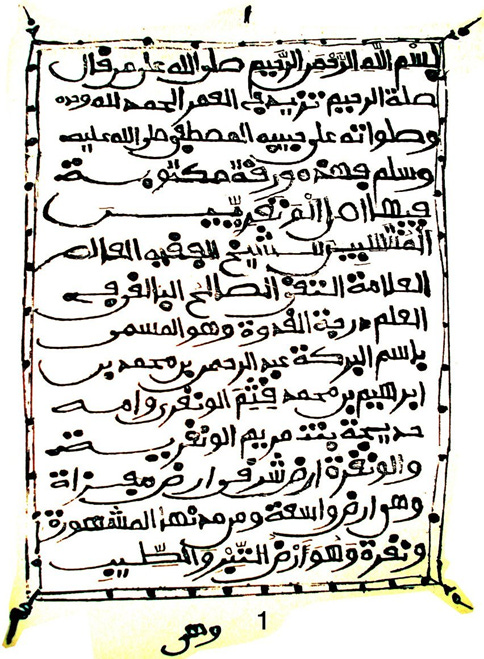 بسم الله الرحمن الرحيم صلى الله على من قال
صلة الرحيم تزيد في العمر الحمد لله وحده
وصلواته على حبيبه المصطفى صلى الله عليه
وسلم فهذه ورقة مكتوبة
فيها اصل الونقريين
المنتسبين للشيخ الفقيه العالم
العلامة التقي الصالح البالغ في
العلم درجة القدوة وهو المسمى
بإسم البركة عبد الرحمن بن محمد بن
ابرهيم بن محمد فثم الونغري وامه
خديجة بنت مريم الونغرية
والونغرة ارض شرقي ارض مفزاة
وهي ارض واسعة ومن مدنها المشهورة
ونغرة وهو أرض التبر والطيب
1
وهي